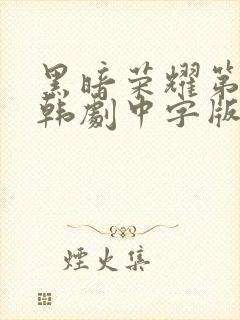 黑暗荣耀第
韩劇中字版
煙火集